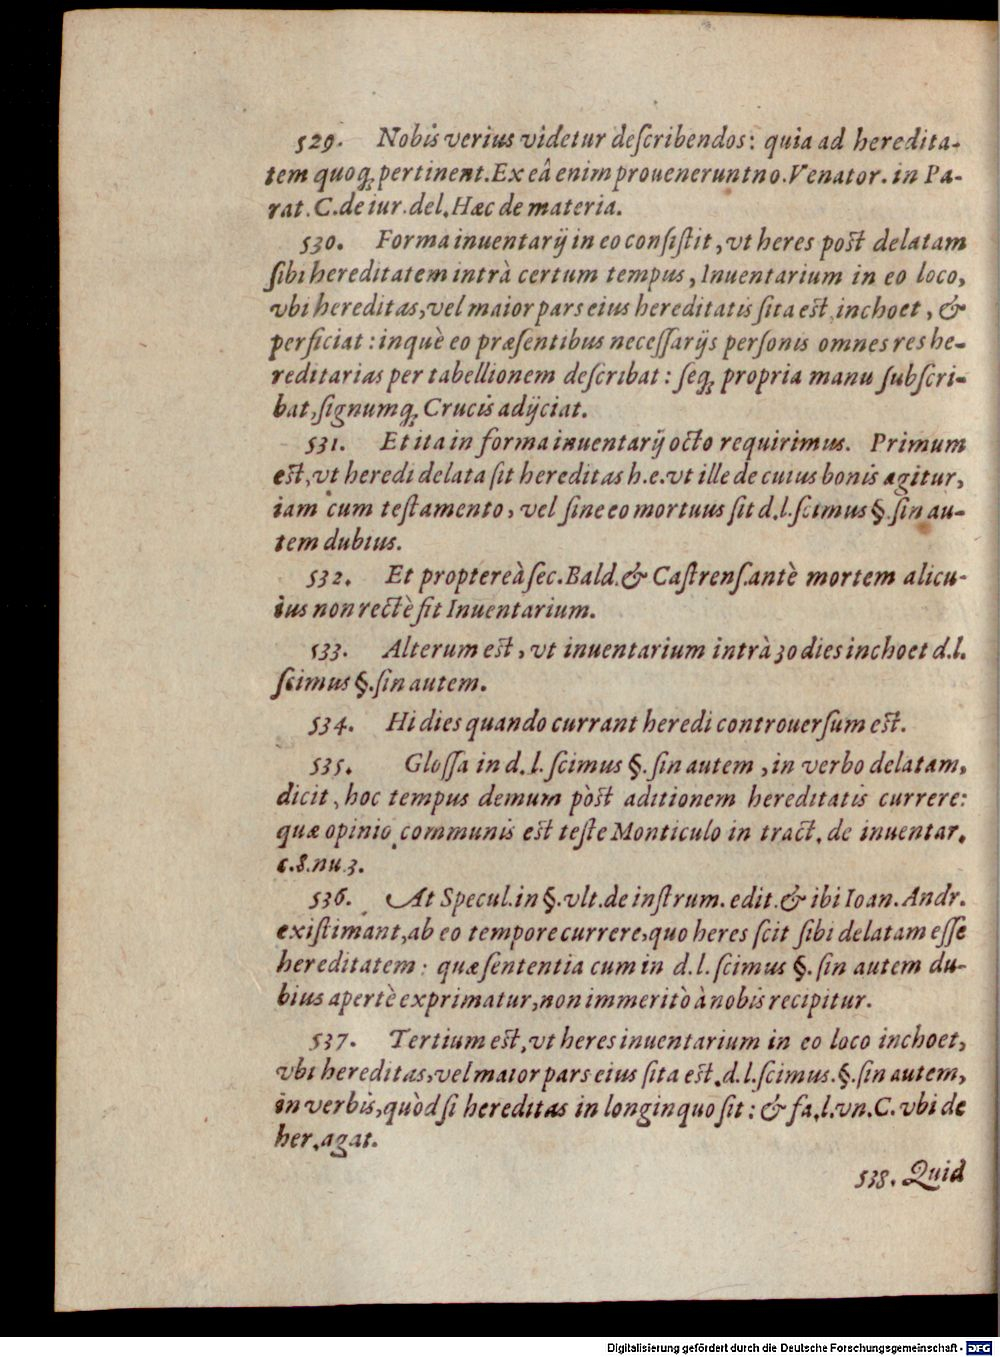 529. Nobis verius videtur deſcribendos: quia ad heredita-
tem quoq; pertinent. Ex eâ enim proueneruntno. Venator. in Pa-
rat. C. de iur. del. Hæc de materia.
530. Forma inuentarij in eo conſiſtit, vt heres post delatam
ſibi hereditatem intrà certum tempus, Inuentarium in eo loco,
vbi hereditas, vel maior pars eius hereditatis ſita est, inchoet, &
perficiat: inquè eo præſentibus neceſſarijs perſonis omnes res he-
reditarias per tabellionem deſcribat: ſeq; propria manu ſubſcri-
bat, ſignumq; Crucis adijciat.
531. Et ita in forma inuentarij octo requirimus. Primum
est, vt heredi delata ſit hereditas h.e. vt ille de cuius bonis agitur,
iam cum teſtamento, vel ſine eo mortuus ſit d. l. ſcimus §. ſin au-
tem dubius.
532. Et proptereà ſec. Bald. & Caſtrenſ. antè mortem alicu-
ius non rectè fit Inuentarium.
533. Alterum est, vt inuentarium intrà 30 dies inchoet d. l.
ſcimus §. ſin autem.
534. Hi dies quando currant heredi controuerſum est.
535. Gloſſa in d. l. ſcimus §. ſin autem, in verbo delatam,
dicit, hoc tempus demum pòst aditionem hereditatis currere:
quæ opinio communis est teſte Monticulo in tract. de inuentar.
c. 8. nu. 3.
536. At Specul. in §. vlt. de inſtrum. edit. & ibi Ioan. Andr.
exiſtimant, ab eo tempore currere, quo heres ſcit ſibi delatam eſſe
hereditatem: quæ ſententia cum in d. l. ſcimus §. ſin autem du-
bius apertè exprimatur, non immeritò à nobis recipitur.
537. Tertium est, vt heres inuentarium in eo loco inchoet,
vbi hereditas, vel maior pars eius ſita est. d. l. ſcimus. §. ſin autem,
in verbis, quòd ſi hereditas in longinquo ſit: & fa. l. vn. C. vbi de
her. agat.
538. Quid
Digitalisierung gefördert durch die Deutsche Forschungsgemeinschaft - DFG